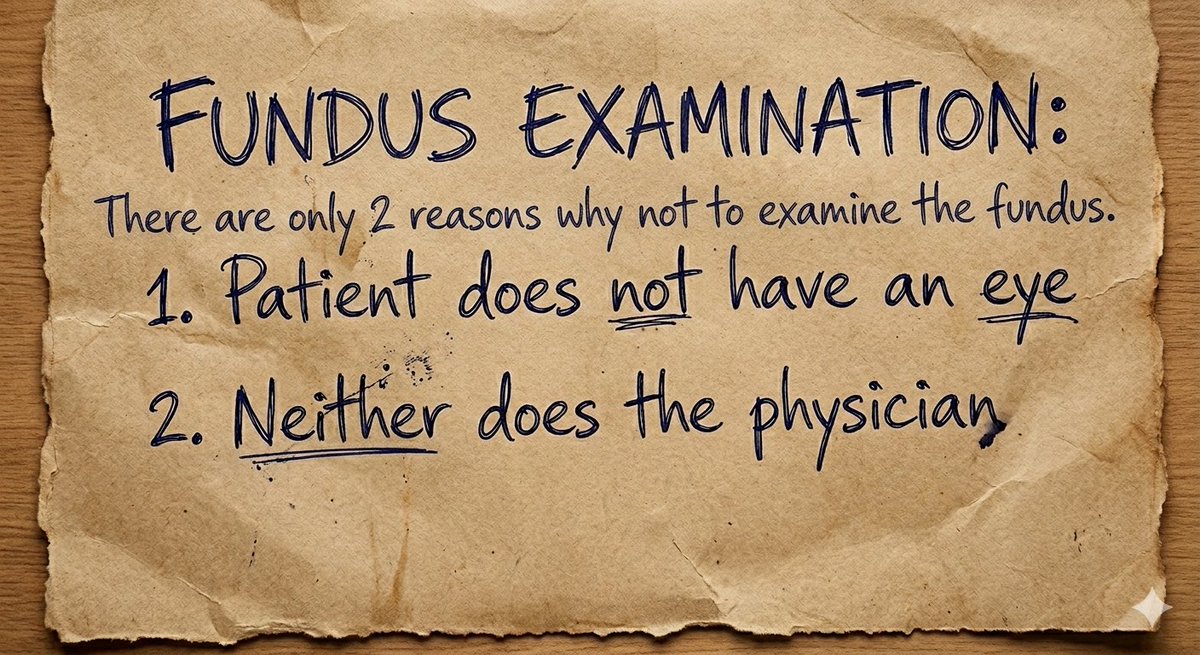 FUNDUS EXAMINATION:
There are only 2 reasons why not to examine the fundus.
1. Patient does not have an eye
2. Neither does the physician